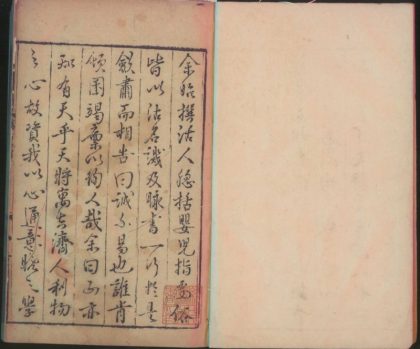 余始撰活人總括嬰兒指要俗
皆以活名識及脉書一以於是
肅而相告曰誠不易也誰肯
傾囷竭藁以徇人哉余曰而亦
知有天乎天將寓吾濟人利物
之心故資我以心通意曉之學